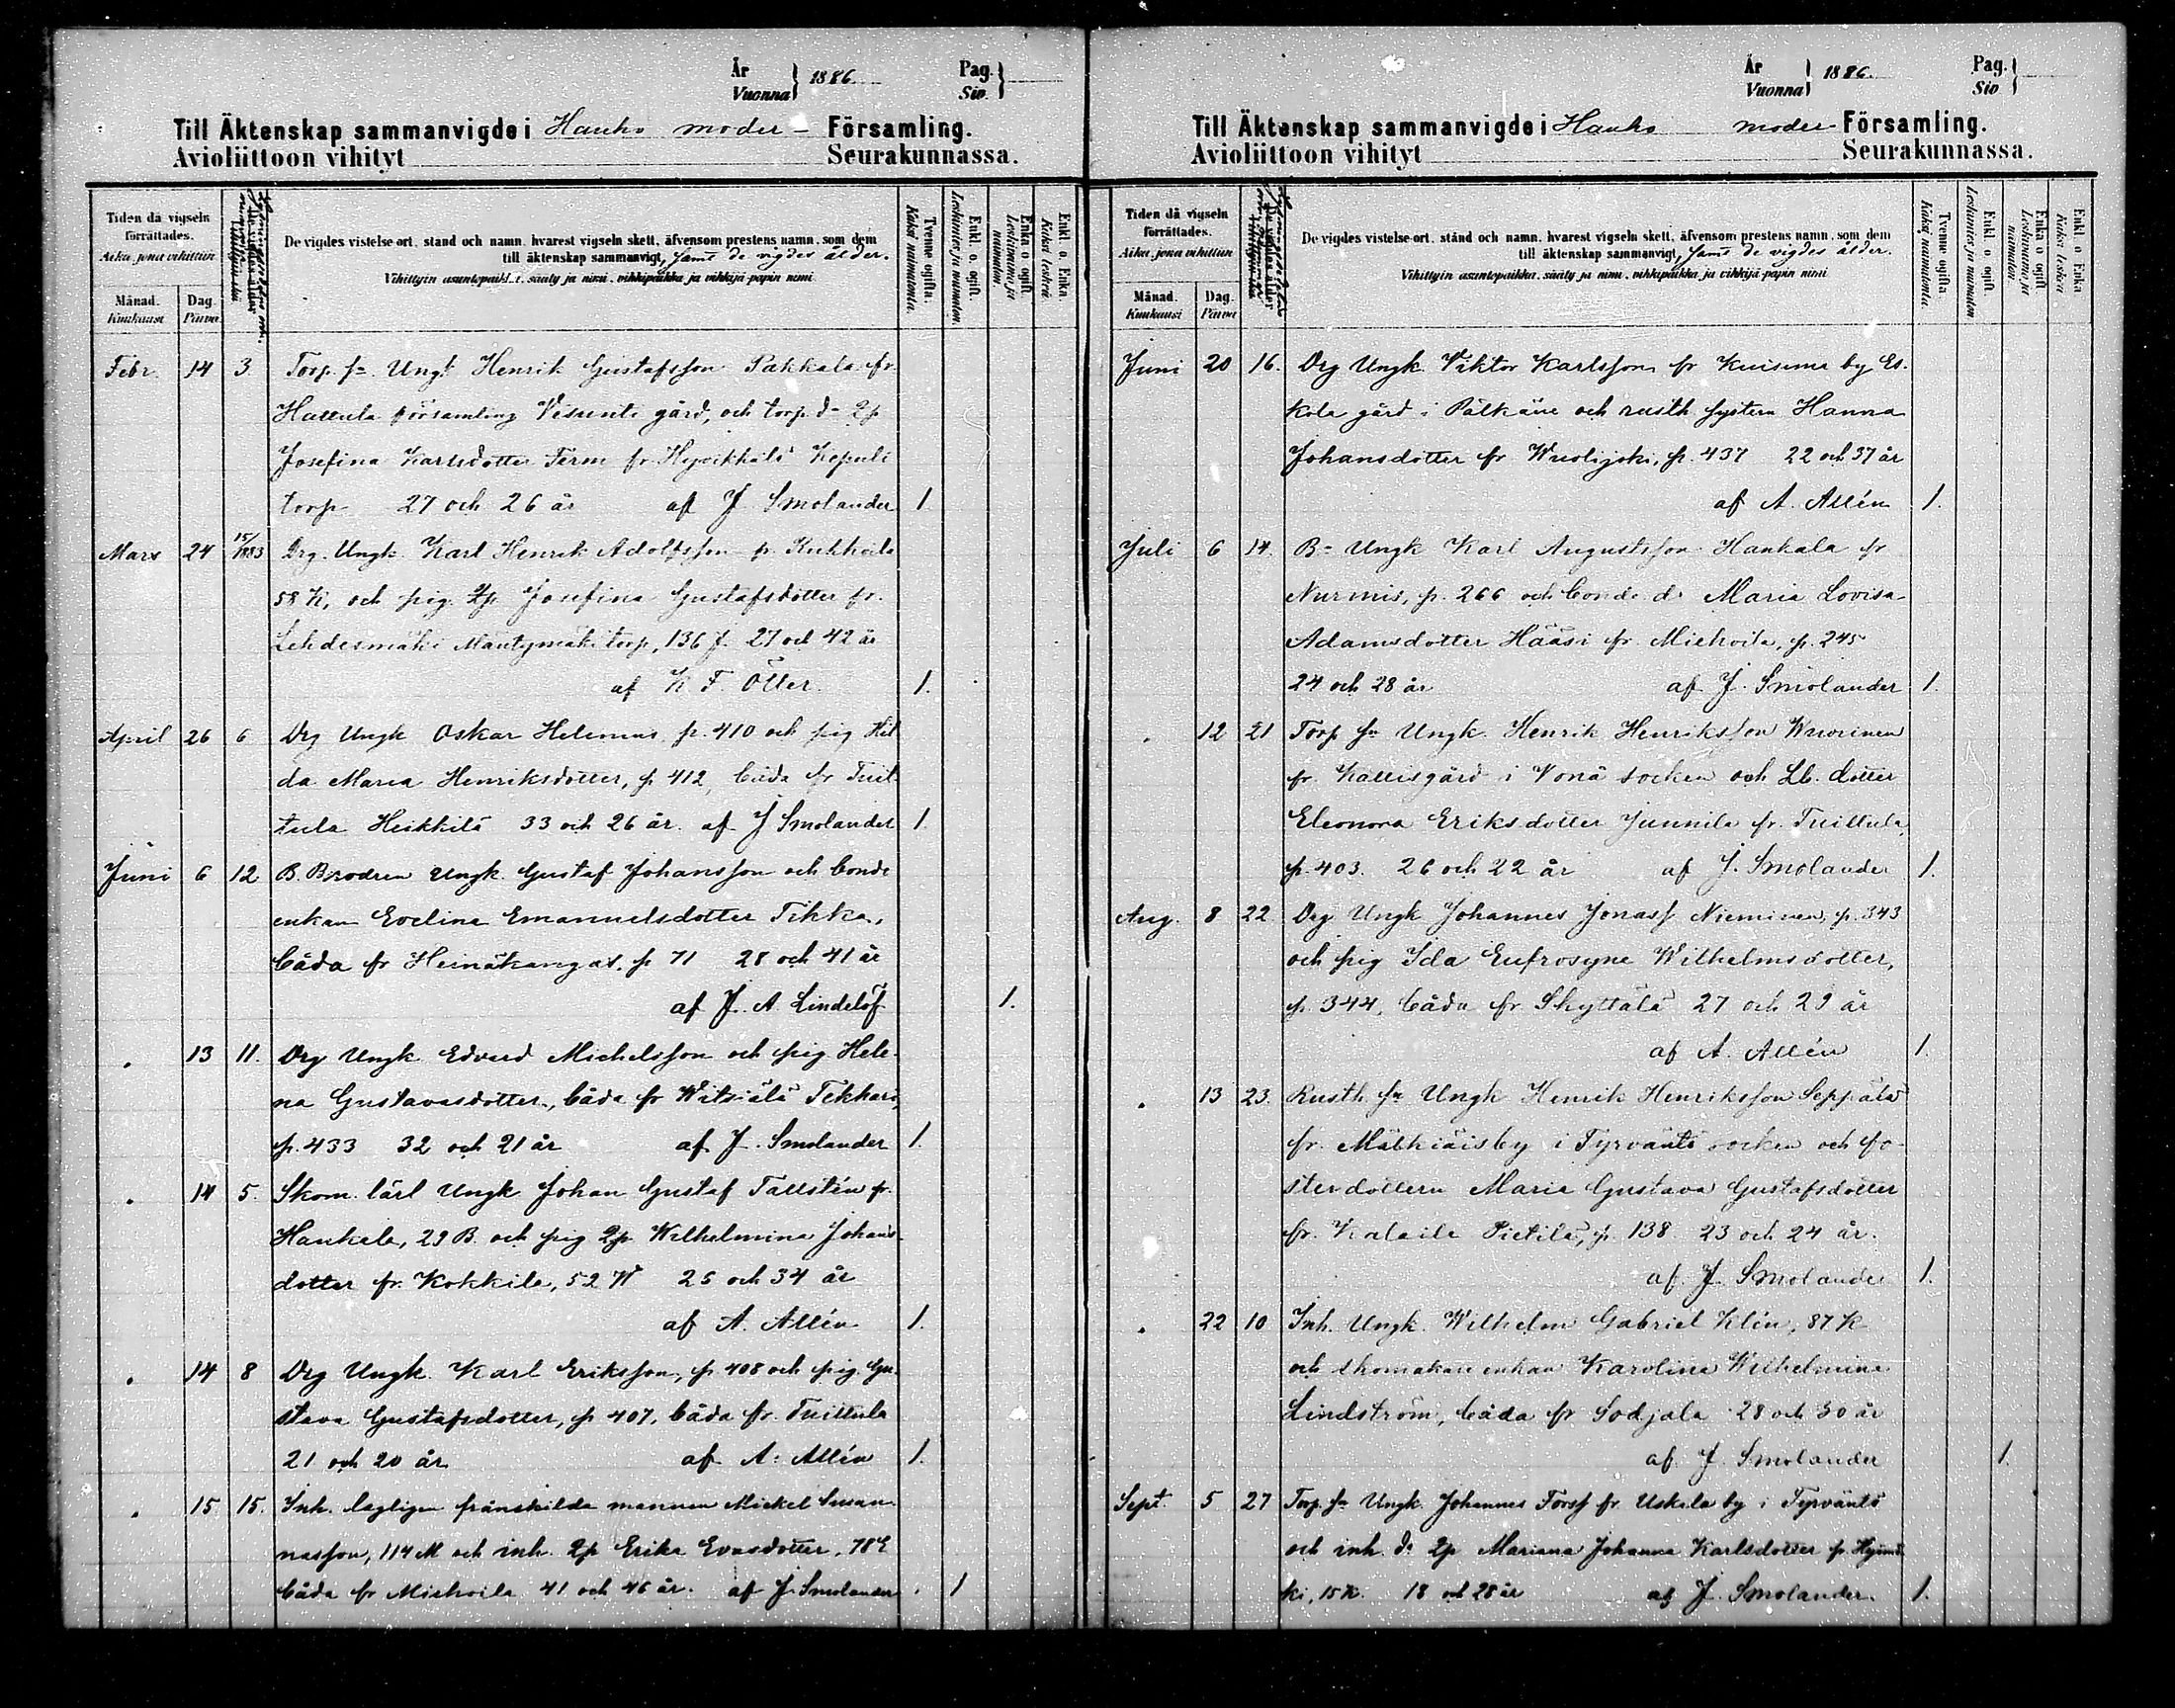 År
Vuonna
1886.
Pag.
Siv.
Till Äktenskap sammanvigde i Hauho moder- Församling.
Avioliittoon vihityt Seurakunnassa.
Tiden då vigseln förrättades.
Aika, jona vihittiin
Månad. Kuukausi
Dag. Päivä
De vigdes vistelse-ort, stånd och namn, hvarest vigseln skett, äfvensom prestens namn, som dem
till äktenskap sammanvigt, samt de vigdes ålder.
Vihittyin asuntopaikka, sääty ja nimi, vihkipaikka ja vihkijä-papin nimi
Tvenne ogifta. Kaksi naimatonta.
Enkl. o. ogift. Leskimies ja naimaton.
Enka o ogift. Leskivaimo ja naimaton.
Enkl. o. Enka. Kaksi leskeä
Febr. 14 3. Torp. sn Ungk Henrik Gustafsson Pakkala fr
Hattula församling Vesunti gård, och torp. dr Qp
Josefina Karlsdotter Term fr. Hyvikkälä Kepuli
torp 27 och 26 år af J Smolander 1
Mars 24 15/1883 Drg. Ungk. Karl Henrik Adolfsson fr. Kukkoila
58 K, och pig. Qp Josefina Gustafsdotter fr.
Lehdesmäki Mäntymäki torp, 136 J. 27 och 42 år
af K. F. Otter. 1.
April 26 6 Drg Ungk Oskar Helenius p. 410 och pig Hil
da Maria Henriksdotter, p 412, båda fr Tuit
tula Heikkilä 33 och 26 år. af J Smolander 1.
Juni 6 12 B. Brodren Ungk. Gustaf Johansson och bonde
enkan Evelina Emanuelsdotter Tikka,
båda fr Heinäkangas, p 71 28 och 41 år
af J. A. Lindelöf 1.
. 13 11. Drg Ungk Edvard Michelsson och pig Hele-
na Gustavasdotter, båda fr Witsiälä Tekkari,
p. 433 32 och 21 år af J. Smolander 1.
. 14 5. Skom. lärl Ungk Johan Gustaf Tallstén fr.
Hankala, 29 B. och pig Qp Wilhelmina Johans-
dotter fr. Kokkila, 52 W 25 och 34 år
af A. Allén 1.
. 14 8 Drg Ungk. Karl Eriksson, p. 408 och pig. Gu-
stava Gustafsdotter, p 407, båda fr. Tuittula
21 och 20 år af A. Allén 1.
. 15 15. Inh. lagligen frånskilde mannen Mickel Susan-
nasson, 114 M och inh. Qp Erika Evasdotter, 78 E
båda fr Miehoila 41 och 46 år. af J. Smolander 1
År
Vuonna
1886.
Pag.
Siv
Till Äktenskap sammanvigde i Hauho moder- Församling.
Avioliittoon vihityt Seurakunnassa.
Tiden då vigseln förrättades.
Aika, jona vihittiin
Månad. Kuukausi
Dag. Päivä
De vigdes vistelse-ort, stånd och namn, hvarest vigseln skett, äfvensom prestens namn, som dem
till äktenskap sammanvigt, samt de vigdes ålder.
Vihittyin asuntopaikka, sääty ja nimi, vihkipaikka ja vihkijä-papin nimi
Tvenne ogifta. Kaksi naimatonta
Enkl. o. ogift. Leskimies ja naimaton
Enka o ogift Leskivaimo ja naimaton.
Enkl o Enka. Kaksi leskeä
Juni 20 16. Drg Ungk Viktor Karlsson fr Kuisema by Es-
kola gård i Pälkäne och rusth. system Hanna
Johansdotter fr Wuolijoki, p. 437 22 och 37 år
af A. Allén 1.
Juli 6 14. Bn Ungk Karl Augustsson Hankala fr
Nurmis, p. 266 och bonde dr Maria Lovisa
Adamsdotter Hääsi fr. Miehoila, p. 245
24 och 28 år af J. Smolander 1.
. 12 21 Torp sn Ungk. Henrik Henriksson Wuorinen
fr. Kallisgärd i Vonå socken och Lb. dotter
Eleonora Eriksdotter Junnila fr. Tuittula,
p. 403. 26 och 22 år af J. Smolander 1.
Aug. 8 22 Drg Ungk Johannes Jonass Nieminen, p. 343
och pig Ida Eufrosyne Wilhelmsdotter,
p. 344, båda fr Skyttälä 27 och 29 år
af A. Allén 1.
. 13 23. Rusth sn Ungk Henrik Henriksson Seppälä
fr. Mälkiäis by i Tyrväntö socken och fo-
sterdottern Maria Gustava Gustafsdotter
fr. Kalaila Pietilä, p. 138 23 och 24 år.
af J. Smolander 1.
. 22 10 Inh. Ungk. Wilhelm Gabriel Klén, 87 K
och skomakare enkan Karolina Wilhelmina
Lindström, båda fr Sodjala 28 och 30 år
af J. Smolander 1.
Sept. 5 27 Torp. sn Ungk. Johannes Forss fr. Uskila by i Tyrväntö
och inh. dr Qp Mariana Johanna Karlsdotter fr.
ki, 15 K. 18 och 28 år af J. Smolander. 1.